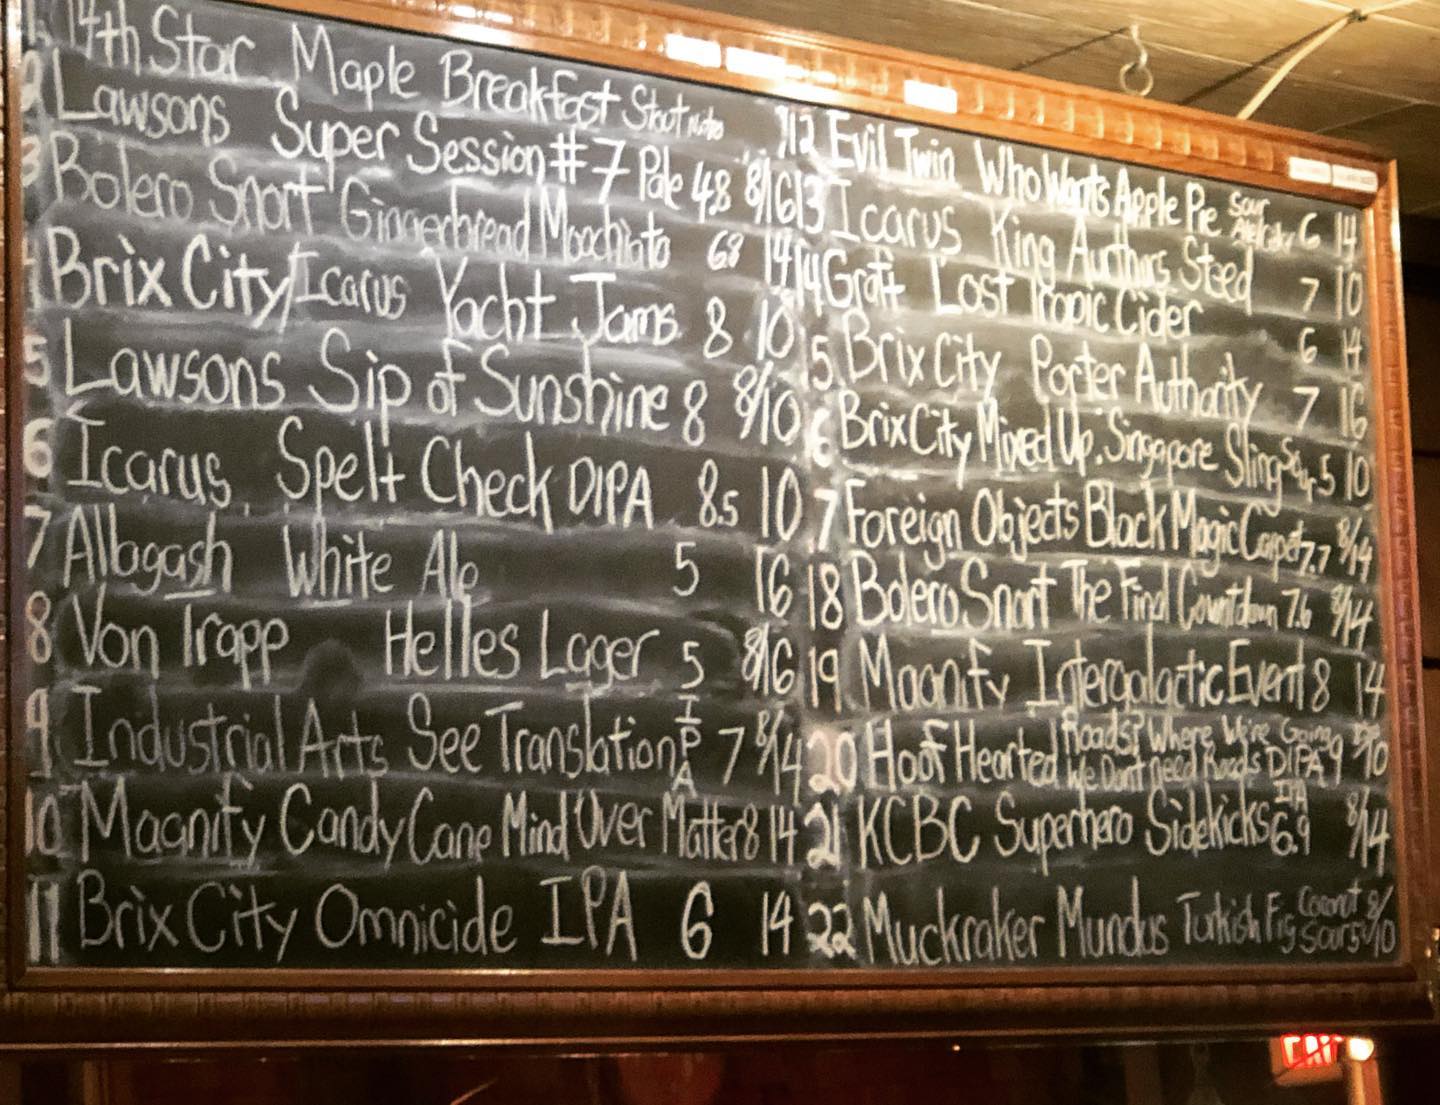 14th Star Maple Breakfast Stout nitro
2 Lawsons Super Session #7 Pale 4.8 8/16
3 Bolero Snort Gingerbread Moochiato 6.8 14
Brix City/Icarus Yacht Jams 8 10
5 Lawsons Sip of Sunshine 8 8/10
6 Icarus Spelt Check DIPA 8.5 10
7 Allagash White Ale 5 16
8 Von Trapp Helles Lager 5 8/16
9 Industrial Arts See Translation IPA 7 8/14
10 Magnify Candy Cane Mind Over Matter 8 14
11 Brix City Omnicide IPA 6 14
12 Evil Twin Who Wants Apple Pie Sour 6 14
13 Icarus King Authurs Steed 7 10
14 Graft Lost Tropic Cider 6 14
5 Brix City Porter Authority 7 16
6 Brix City Mixed Up. Singapore Sling Sour 5 10
7 Foreign Objects Black Magic Carpet 7.7 8/14
18 Bolero Snort The Final Countdown 7.6 8/14
19 Magnify Intergalactic Event 8 14
20 Hoof Hearted Roads? Where We're Going We Dont need Roads DIPA 9 /10
21 KCBC Superhero Sidekicks IPA 6.9 8/14
22 Muckraker Mundus Turkish Fig Coconut Sour 5 8/10
EXIT